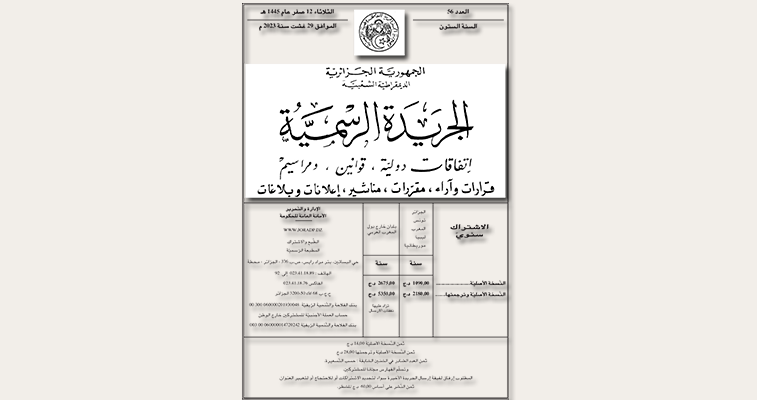 العدد 56
السنة الستون
الثلاثاء 12 صفر عام 1445 هـ
الموافق 29 غشت سنة 2023 م
الجمهورية الجزائرية
الديمقراطية الشعبية
الجريدة الرسمية
إتفاقات دولية ، قوانين ، ومراسيم
قرارات وآراء ، مقررات ، مناشير ، إعلانات وبلاغات
الاشتراك
سنوي
الجزائر
تونس
المغرب
ليبيا
موريطانيا
بلدان خارج دول
المغرب العربي
سنة
سنة
النسخة الأصلية
1090,00 د.ج
2675,00 د.ج
النسخة الأصلية وترجمتها
2180,00 د.ج
5350,00 د.ج
تزاد عليها
نفقات الإرسال
الإدارة والتحرير
الأمانة العامة للحكومة
WWW.JORADP.DZ
الطبع والاشتراك
المطبعة الرسمية
حي البساتين، بئر مراد رايس، ص.ب 376 - الجزائر - محطة
الهاتف : 023.41.18.89 إلى 92
الفاكس 023.41.18.76
ح.ج.ب 3200-50 الجزائر
بنك الفلاحة والتنمية الريفية
حساب العملة الأجنبية للمشتركين خارج الوطن
بنك الفلاحة والتنمية الريفية
ثمن النسخة الأصلية 14,00 د.ج
ثمن النسخة الأصلية وترجمتها 28,00 د.ج
ثمن العدد الصادر في السنين السابقة : حسب التسعيرة
وتسلم الفهارس مجانا للمشتركين
المطلوب إرفاق لفيفة إرسال الجريدة الأخيرة سواء لتجديد الاشتراكات أو للاحتجاج أو لتغيير العنوان
ثمن النشر على أساس 60,00 د.ج للسطر